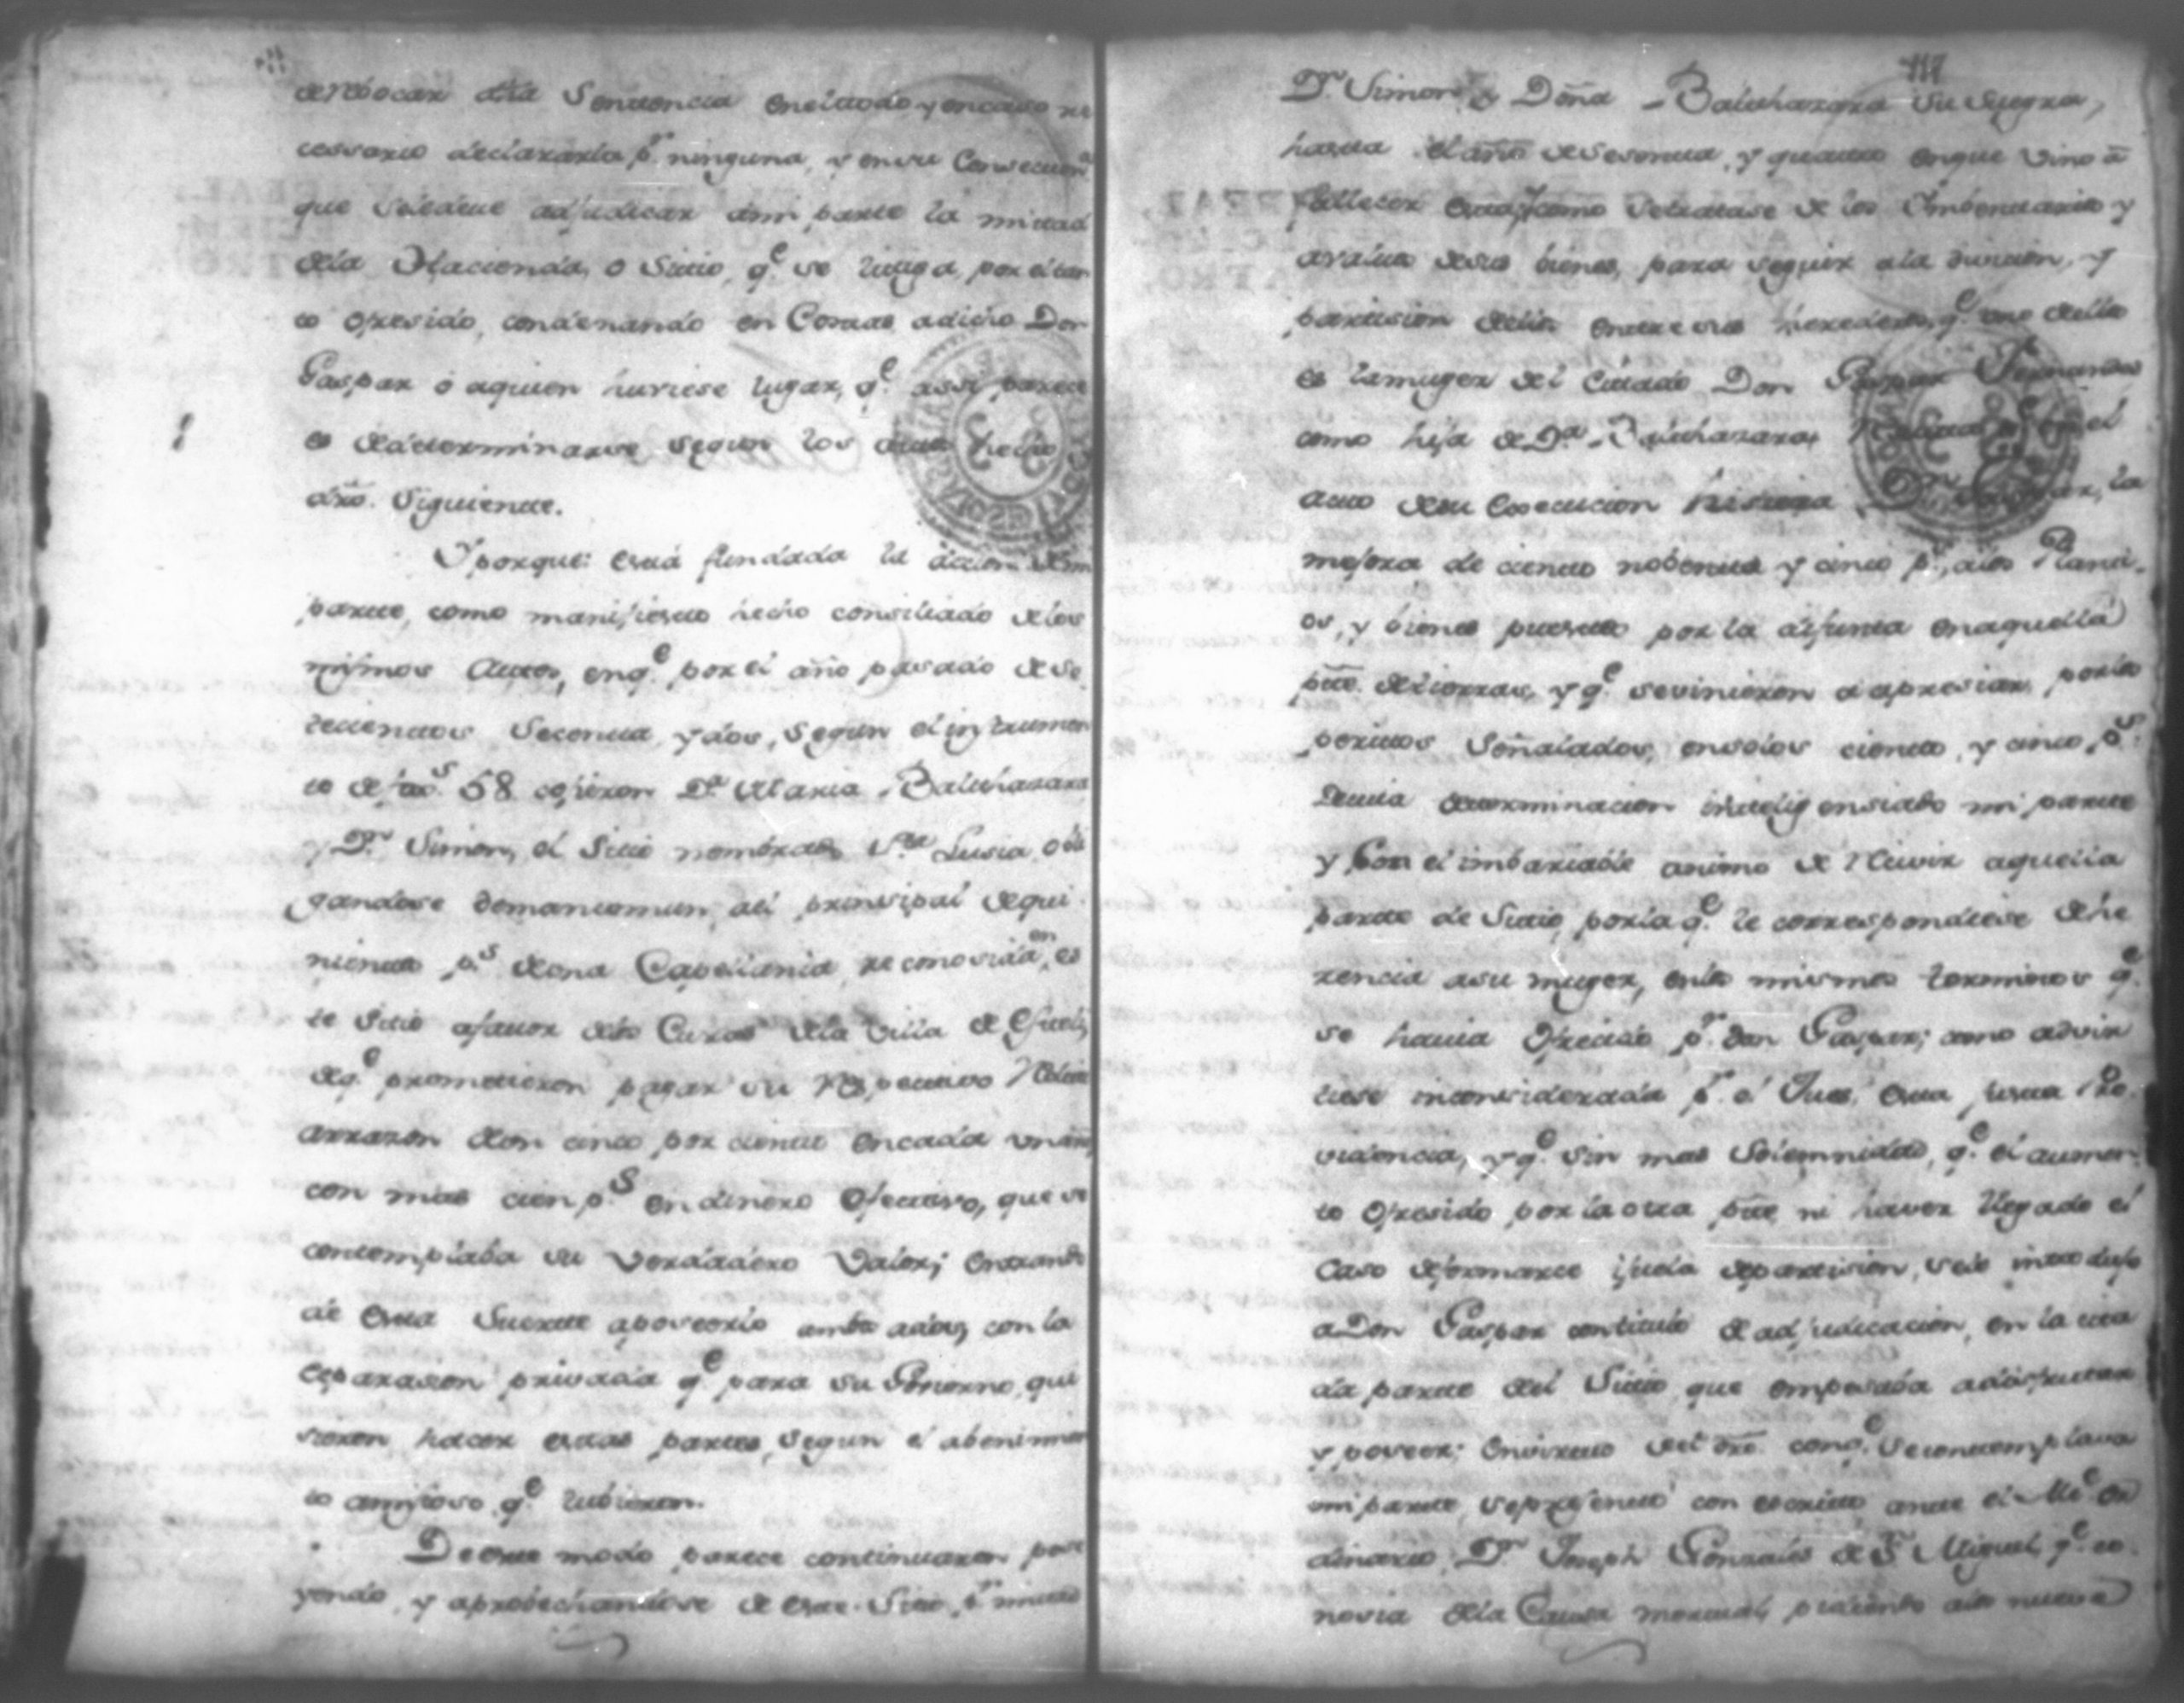 de rebocar dha Sentencia en el todo, y en caso ne
cessario declararla pr. ninguna, y en su Consecuena.
que se le deve adjudicar a mi parte la mitad
de la Hacienda, o Sitio, qe. se litiga, por el tan
to ofresido, condenando en Costas a dicho Don
Gaspar o a quien huviese lugar, qe. assi parece
es de determinarse segun los autos hecho y
dro. Siguiente.
Y porque: está fundada la accion de mi
parte, como manifiesto hecho consiliado de los
mismos Autos, en qe. por el año pasado de Se
tecientos Secenta, y dos, segun el instrumen
to de fxs. 58 cojieron Da. Maria Balthazara
y Dn. Simon, el Sitio nombrado Sta. Lusia, obli
gandose de mancomun, al prinsipal de qui
nientos ps. de una Capellania, reconosida en es
te Sitio a favor de los Curas de la Villa de
de qe. prometieron pagar su respectivo redito
a rrazon de un cinco por ciento en cada un año,
con mas cien ps. en dinero efectivo, que se
contemplaba su verdadero valor; entrando
de esta Suerte a poseerlo ambos a dos, con la
separasion privada qe. para su Govierno, qui
sieron hacer estas partes, segun el abenimien
to amistoso, qe. tubieron.
De este modo parece continuaron pose
yendo, y aprobechandose de este Sitio, pr. mitad
117
Dn. Simon, y Doña Balthazara su suegra,
hasta el año de sesenta, y quatro en que vino â
falleser esta, y como se tratase de los Imbentarios y
avaluo de sus bienes, para seguir a la divicion, y
partision de ellos entre sus herederos, qe. uno de ellos
es la muger del citado Don Gaspar Fernandes
como hija de Da. Balthazara, el
acto de su Execucion hisiera Dn. la
mejora de ciento nobenta y cinco ps., a los Planti
os, y bienes puestos por la difunta en aquella
pte. de tierras, y qe. se vinieron a apresiar, por los
peritos Señalados, en solos ciento, y cinco ps.
Desta determinacion inteligensiado mi parte
y con el imbariable animo de recivir aquella
parte de Sitio, por la qe. le correspondiese de he
rencia a su muger, en los mismos terminos qe.
se havia ofrecido pr. Don Gaspar; como advir
tiese inconsiderada pr. el Juez, esta justa Pro
videncia, y qe. sin mas Solemnidad, qe. el aumen
to ofresido por la otra pte. ni haver llegado el
caso de formarse hijuela de partision, se le introdujo
a Don Gaspar con titulo de adjudicacion, en la cita
da parte del Sitio, que empesaba a disfrutar
y poseer; en virtud del dro. con qe. se contemplava
mi parte, se presentó con escrito ante el Alce. or
dinario, Dn. Joseph Gonzales de Sn. Miguel, qe. co
nosia de la Causa mortual, pidiendo a la nueva